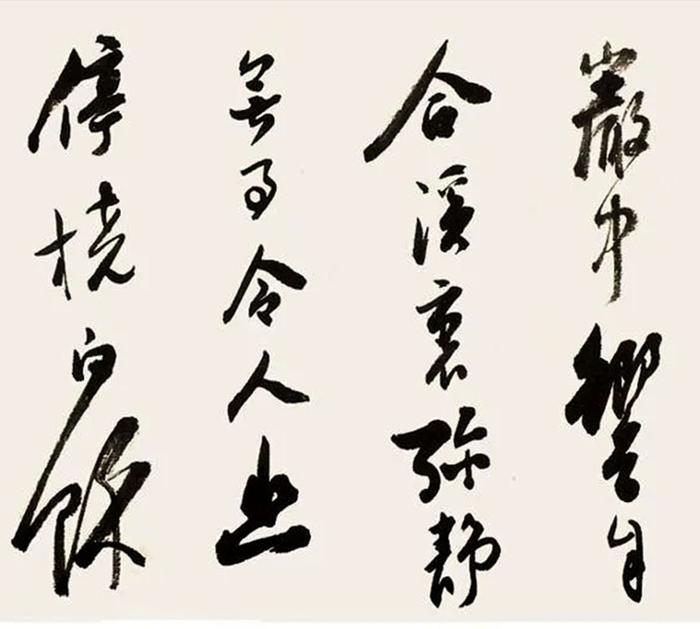 巖中響自
合溪裏弥静
無事令人幽
停橈向餘